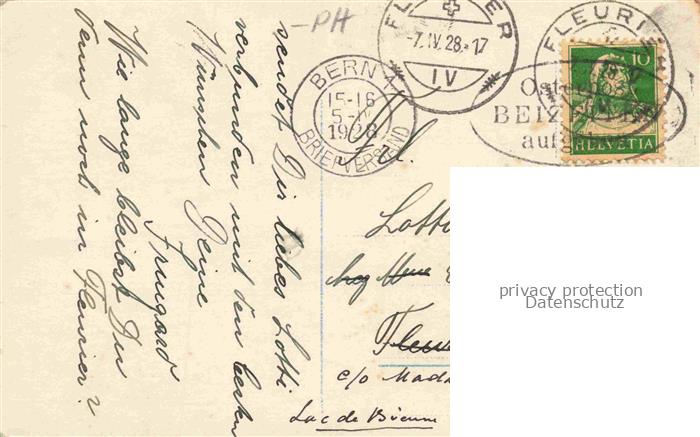 -PH
FLEURIER
-7.IV.28.-17
IV
FLEURIER
BERN 1
15-16
5-IV
1928
BRIEFVERSAND
10
HELVETIA
aufgeben
sendet Dir liebes Lotti
verbunden mit den besten
Wünschen Deine
Irmgard
Wie lange bleibst Du
denn noch in Fleurier?
Frl.
Lotti
chez Mme
Fleu
c/o Mad
Lac de Bienne
privacy protection
Datenschutz